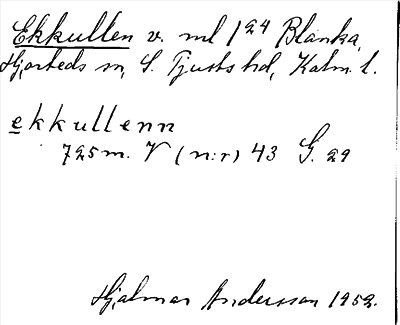 Ekkullen v. ml 1²⁴ Blanka,
Hjorteds sn, S. Tjusts hd, Kalm. l.
ekkullenn
725m. V (n:r) 43 G. 29
Hjalmar Andersson 1952.